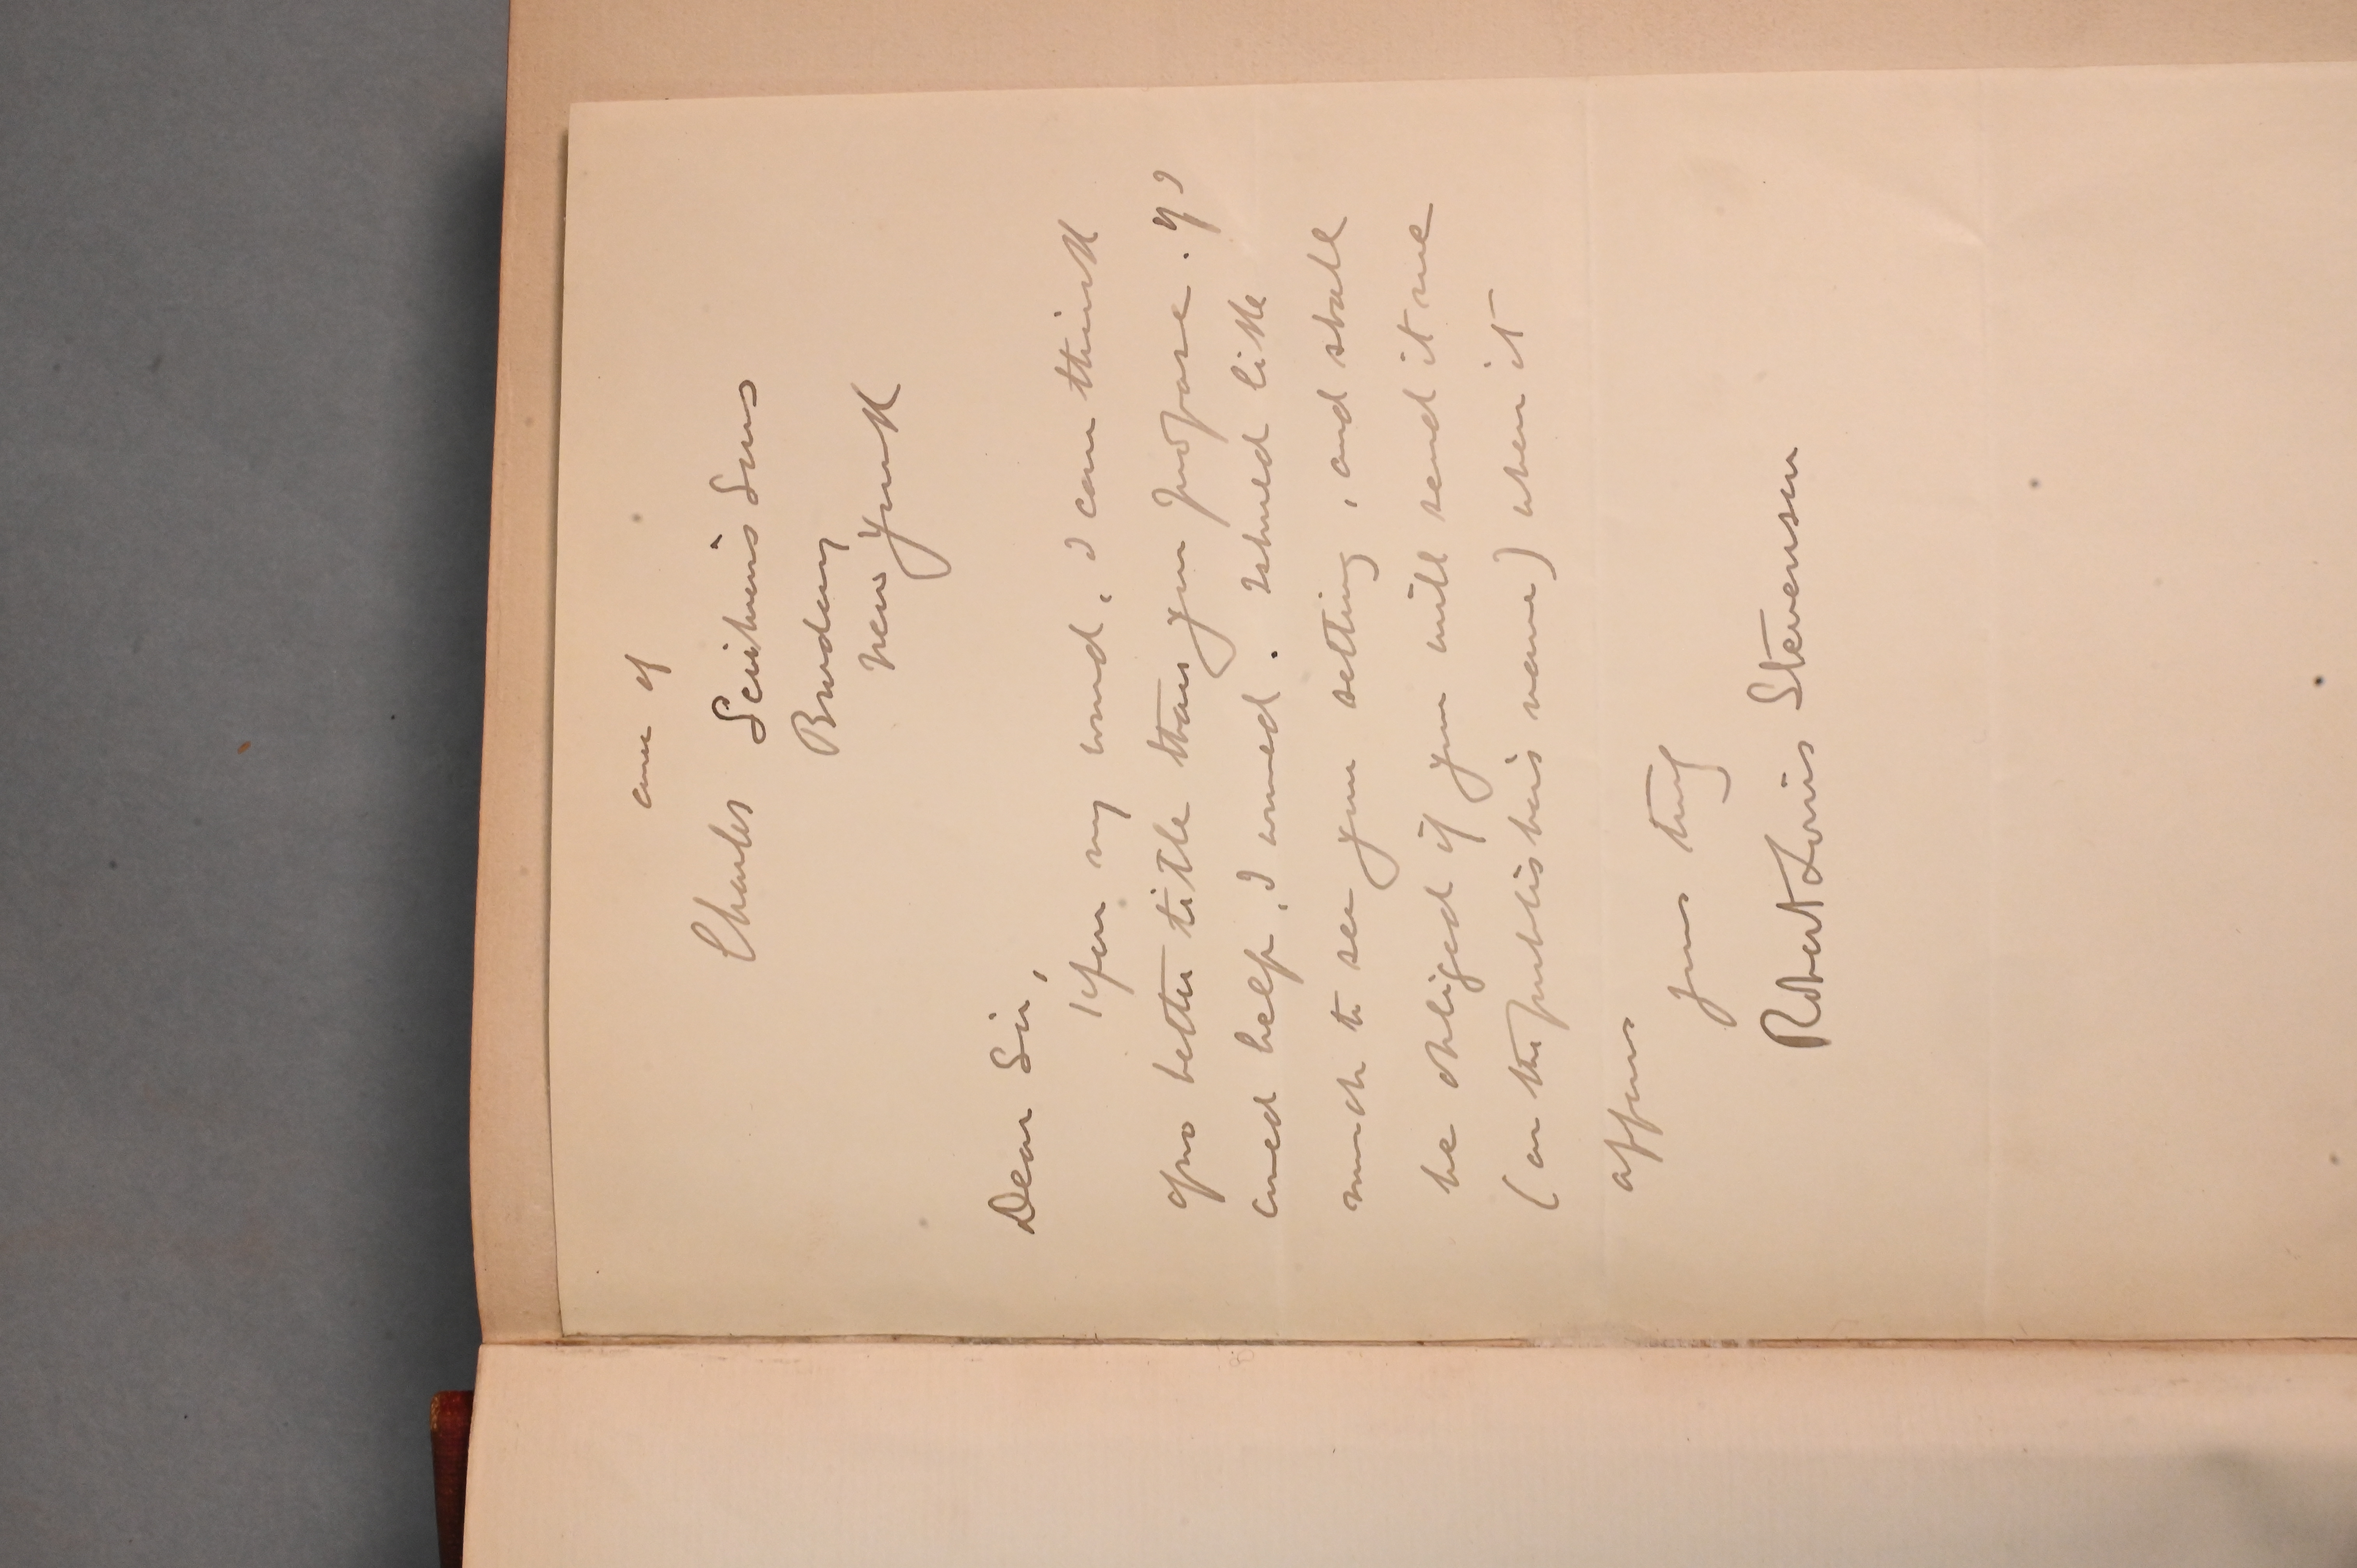 care of
Charles Scribner's Sons
Broadway
New York
Dear Sir,
Upon my word, I can think
of no better title than you propose. If I
could help, I would. I should like
much to see your setting, and shall
be obliged if you will send it me
(or the publisher's name) when it
appears
yours truly
Robert Louis Stevenson